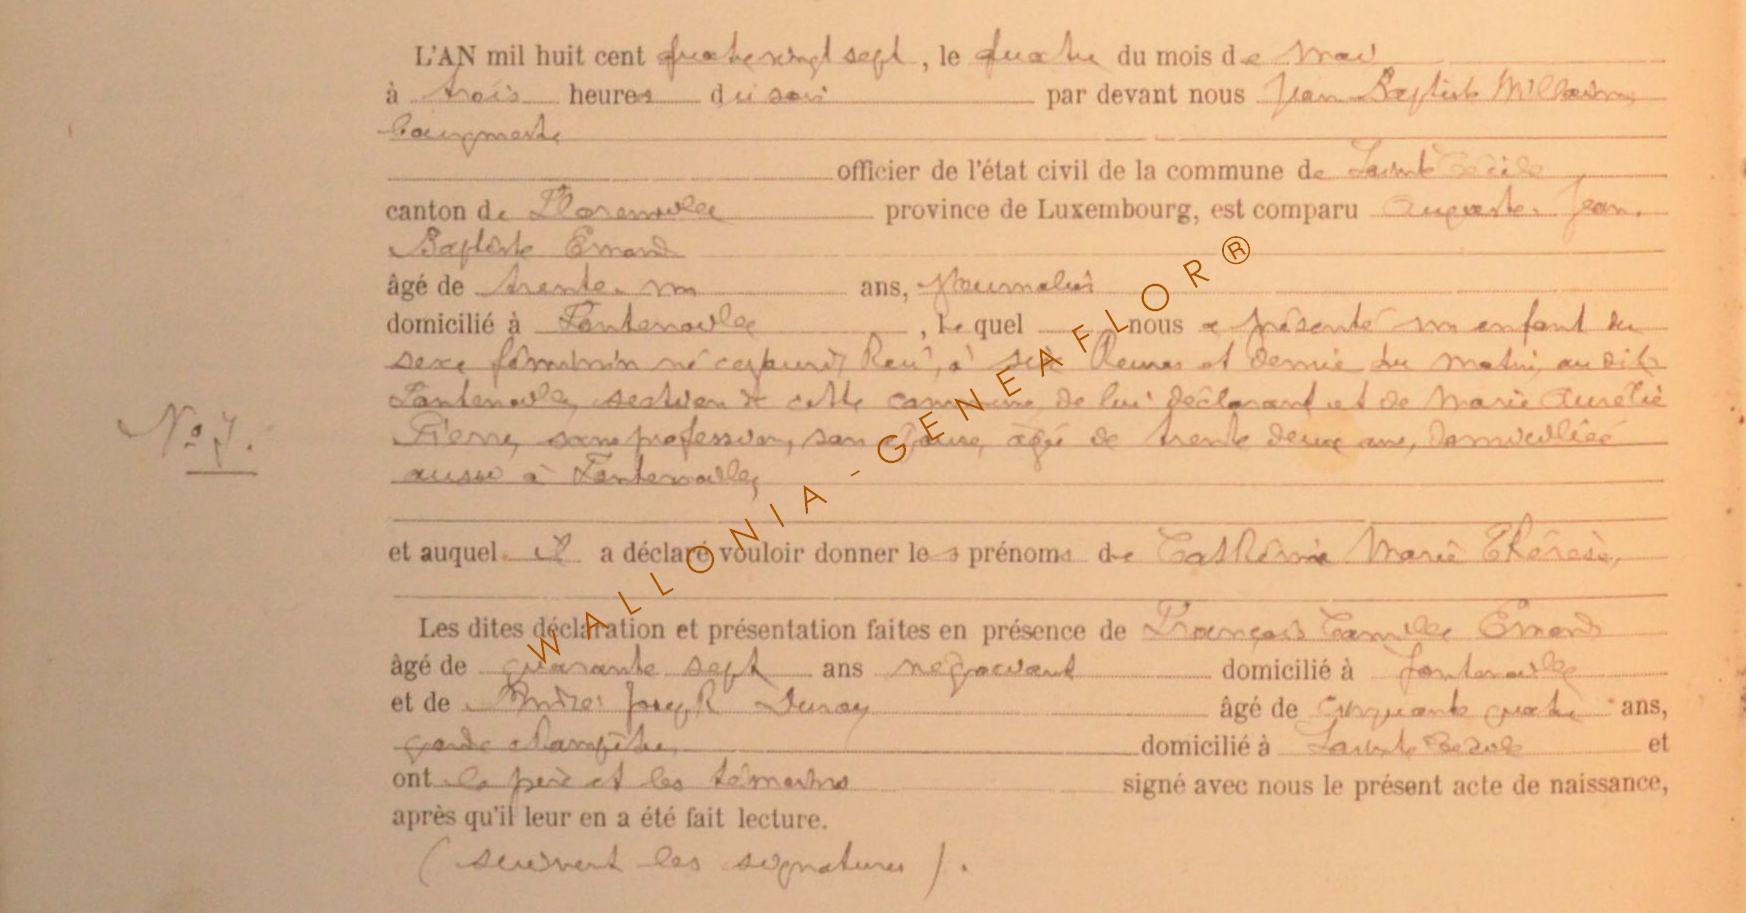 L'AN mil huit cent quatre vingt sept, le quatre du mois de Mai
à trois heures du soir par devant nous Jean Baptiste
bourgmestre
officier de l'état civil de la commune de Sainte Cécile
canton de Florenville province de Luxembourg, est comparu Auguste Jean
Baptiste Emond
âgé de trente un ans, journalier
domicilié à Fontenoille, lequel nous a présenté un enfant du
sexe féminin né à sept heures et demie du matin, au dit
Fontenoille, section de cette commune de lui déclarant et de Marie Aurélie
Pierre, sans profession, son épouse, âgée de trente deux ans, domiciliée
aussi à Fontenoille,
No 7.
et auquel il a déclaré vouloir donner les prénoms de Cathérine Marie Thérèse,
Les dites déclaration et présentation faites en présence de François Camille Emond
âgé de quarante sept ans négociant domicilié à Fontenoille
et de André Joseph âgé de cinquante quatre ans,
garde champêtre, domicilié à Sainte Cécile et
ont le père et les témoins signé avec nous le présent acte de naissance,
après qu'il leur en a été fait lecture.
(suivent les signatures).
WALLONIA-GENEAFLOR®